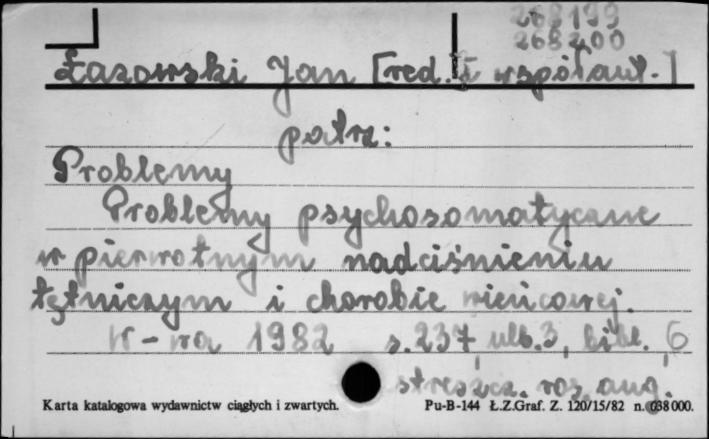 268199
268200
Łazowski Jan [red. i współaut.]
patrz:
Problemy
Problemy psychosomatyczne
w pierwotnym nadciśnieniu
tętniczym i chorobie wieńcowej.
W-wa 1982 s. 237, ulb. 3, bibl. 6
streszcz. ros. ang.
Karta katalogowa wydawnictw ciągłych i zwartych. Pu-B-144 Ł.Z.Graf. Z. 120/15/82 n. 038 000.